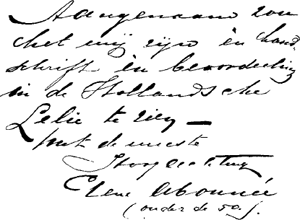 Aangenaam zou
het mij zijn én hand
schrift én beoordeeling
in de Hollandsche
Lelie te zien —
met de meeste
Hoogachting
Eene Abonnée
(onder de 50.)